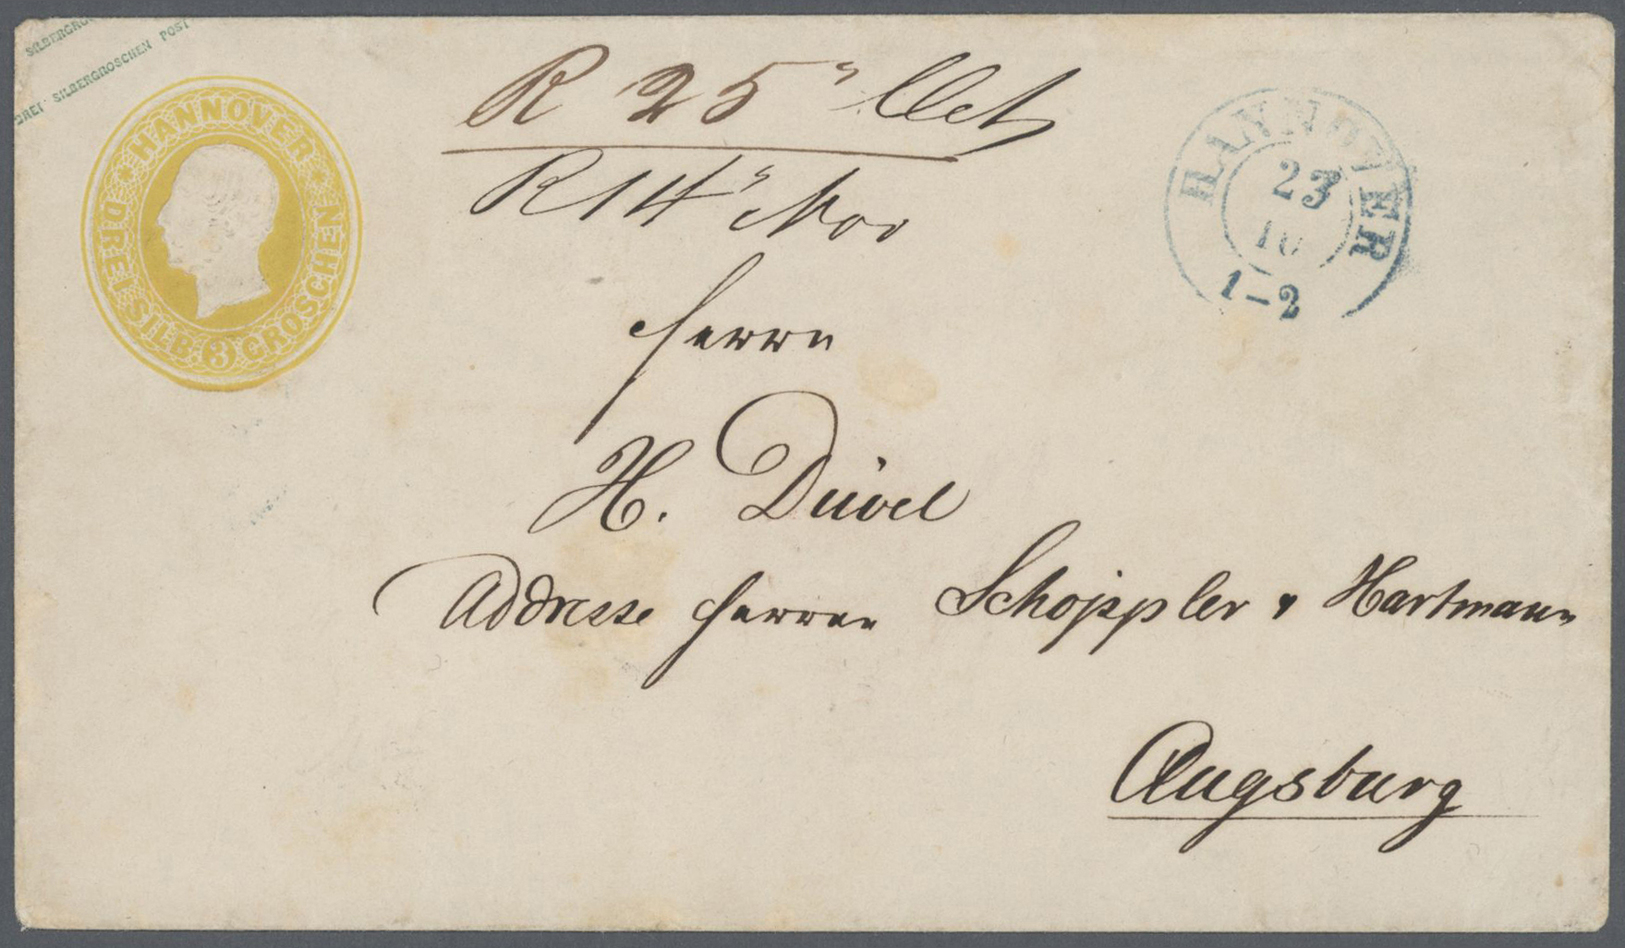 SILBERGRO
DREI SILBERGROSCHEN POST
HANNOVER
DREI SILB. 3 GROSCHEN
R 25 Oct
R 14 Nov
HANNOVER
23
10
1-2
Herrn
H. Düvel
Addresse Herren Schöppler & Hartmann
Augsburg